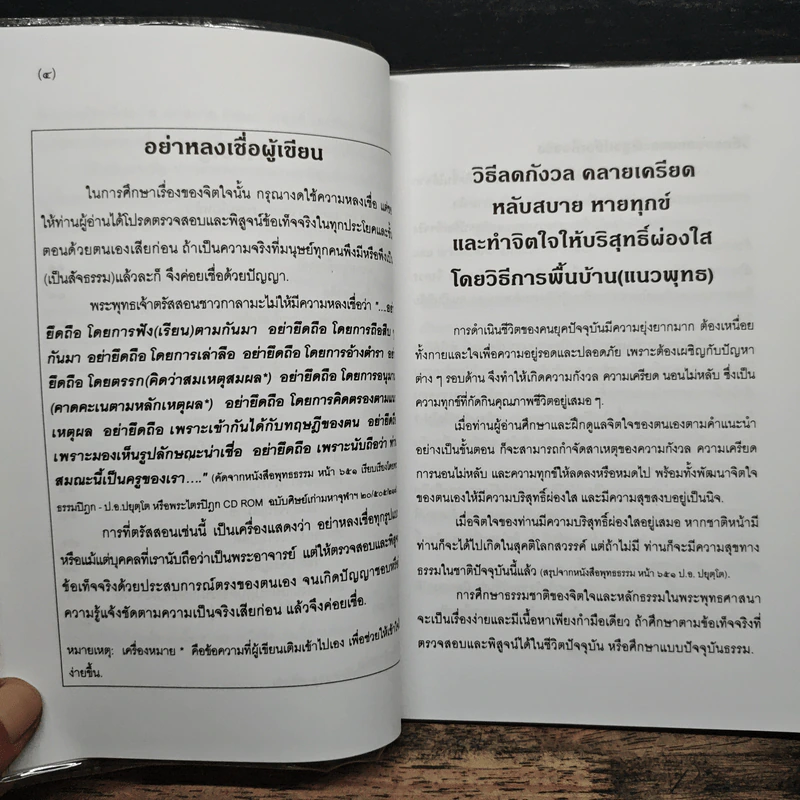 (๔)
อย่าหลงเชื่อผู้เขียน
ในการศึกษาเรื่องของจิตใจนั้น กรุณางดใช้ความหลงเชื่อ
ให้ท่านผู้อ่านได้โปรดตรวจสอบและพิสูจน์ข้อเท็จจริงในทุกประโยคและ
ตอนด้วยตนเองเสียก่อน ถ้าเป็นความจริงที่มนุษย์ทุกคนพึงมีหรือพึง
(เป็นสัจธรรม)แล้วละก็ จึงค่อยเชื่อด้วยปัญญา.
พระพุทธเจ้าตรัสสอนชาวกาลามะไม่ให้มีความหลงเชื่อว่า "...
ยึดถือ โดยการฟัง(เรียน)ตามกันมา อย่ายึดถือ โดยการถือสืบ ๆ
กันมา อย่ายึดถือ โดยการเล่าลือ อย่ายึดถือ โดยการอ้างตำรา
ยึดถือ โดยตรรก(คิดว่าสมเหตุสมผล*) อย่ายึดถือ โดยการ
(คาดคะเนตามหลักเหตุผล*) อย่ายึดถือ โดยการคิดตรองตาม
เหตุผล อย่ายึดถือ เพราะเข้ากันได้กับทฤษฎีของตน
เพราะมองเห็นรูปลักษณะน่าเชื่อ อย่ายึดถือ เพราะนับถือว่า
สมณะนี้เป็นครูของเรา...." (คัดจากหนังสือพุทธธรรม หน้า ๖๕๑
ธรรมปิฎก - ป.อ.ปยุตฺโต หรือพระไตรปิฎก CD ROM ฉบับศิษย์เก่ามหาจุฬาฯ
การที่ตรัสสอนเช่นนี้ เป็นเครื่องแสดงว่า อย่าหลงเชื่อทุกรูปแบบ
หรือแม้แต่บุคคลที่เรานับถือว่าเป็นพระอาจารย์ แต่ให้ตรวจสอบและ
ข้อเท็จจริงด้วยประสบการณ์ตรงของตนเอง จนเกิดปัญญา
ความรู้แจ้งชัดตามความเป็นจริงเสียก่อน แล้วจึงค่อยเชื่อ.
หมายเหตุ: เครื่องหมาย * คือข้อความที่ผู้เขียนเติมเข้าไปเอง เพื่อช่วยให้
ง่ายขึ้น.
วิธีลดกังวล คลายเครียด
หลับสบาย หายทุกข์
และทำจิตใจให้บริสุทธิ์ผ่องใส
โดยวิธีการพื้นบ้าน(แนวพุทธ)
การดำเนินชีวิตของคนยุคปัจจุบันมีความยุ่งยากมาก ต้องเหนื่อย
ทั้งกายและใจเพื่อความอยู่รอดและปลอดภัย เพราะต้องเผชิญกับปัญหา
ต่าง ๆ รอบด้าน จึงทำให้เกิดความกังวล ความเครียด นอนไม่หลับ ซึ่งเป็น
ความทุกข์ที่กัดกินคุณภาพชีวิตอยู่เสมอ ๆ.
เมื่อท่านผู้อ่านศึกษาและฝึกดูแลจิตใจของตนเองตามคำแนะนำ
อย่างเป็นขั้นตอน ก็จะสามารถกำจัดสาเหตุของความกังวล ความเครียด
การนอนไม่หลับ และความทุกข์ให้ลดลงหรือหมดไป พร้อมทั้งพัฒนาจิตใจ
ของตนเองให้มีความบริสุทธิ์ผ่องใส และมีความสุขสงบอยู่เป็นนิจ.
เมื่อจิตใจของท่านมีความบริสุทธิ์ผ่องใสอยู่เสมอ หากชาติหน้ามี
ท่านก็จะได้ไปเกิดในสุคติโลกสวรรค์ แต่ถ้าไม่มี ท่านก็จะมีความสุขทาง
ธรรมในชาติปัจจุบันนี้แล้ว (สรุปจากหนังสือพุทธธรรม หน้า ๖๕๑ ป.อ. ปยุตฺโต).
การศึกษาธรรมชาติของจิตใจและหลักธรรมในพระพุทธศาสนา
จะเป็นเรื่องง่ายและมีเนื้อหาเพียงกำมือเดียว ถ้าศึกษาตามข้อเท็จจริงที่
ตรวจสอบและพิสูจน์ได้ในชีวิตปัจจุบัน หรือศึกษาแบบปัจจุบันธรรม.